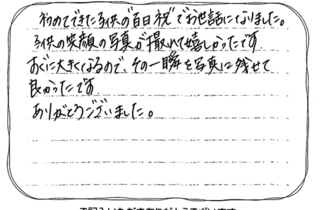 初めてできた子供の"百日祝"でお世話になりました。
子供の笑顔の写真が撮れて嬉しかったです
すぐに大きくなるので、その一瞬を写真に残せて
良かったです
ありがとうございました。